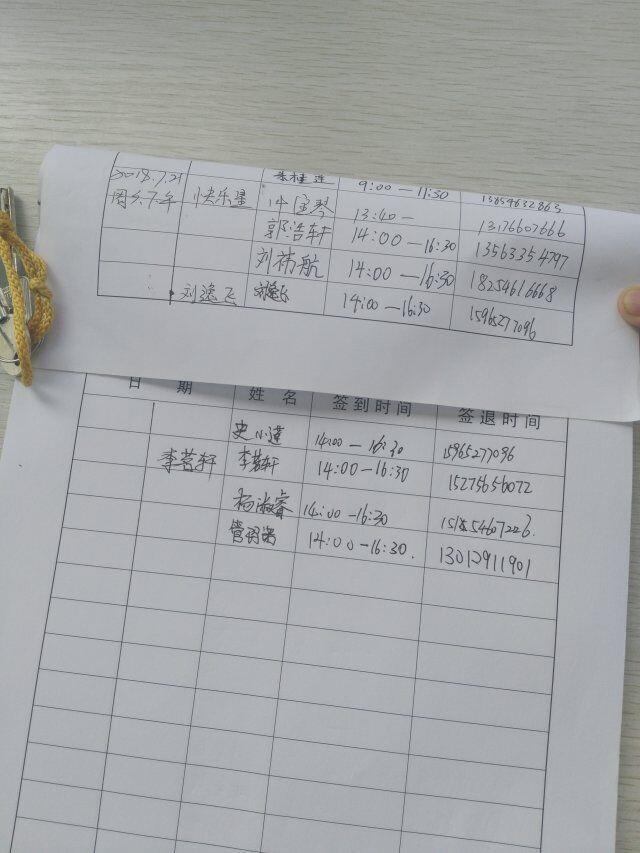 2018.7.21 朱桂连 9:00—11:30 13854632863
周六下午 快乐星 13:40— 13176607666
郭浩轩 14:00—16:30 13563354797
刘祎航 14:00—16:30 18254616668
刘逸飞 刘逸飞 14:00—16:30 15965277096
日期 姓名 签到时间 签退时间
史小莲 14:00—16:30 15965277096
李茗轩 李茗轩 14:00—16:30 15275656072
杨淑睿 14:00—16:30
14:00—16:30. 13012911901